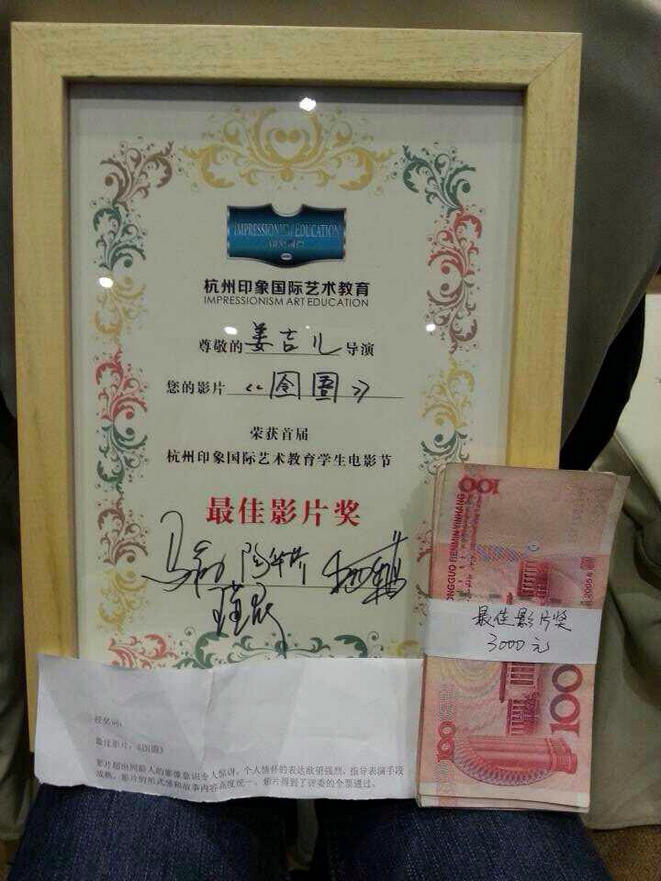 IMPRESSIONISM EDUCATION
杭州印象国际艺术教育
IMPRESSIONISM ART EDUCATION
尊敬的姜吉儿导演
您的影片《囹圄》
荣获首届
杭州印象国际艺术教育学生电影节
最佳影片奖
授奖词:
最佳影片:《囹圄》
影片超出同龄人的影像意识令人惊讶,个人情怀的表达欲望强烈,指导表演手段
成熟,影片的形式感和故事内容高度统一,影片得到了评委的全票通过。
100
ZHONGGUO RENMIN YINHANG
最佳影片奖
3000元
100
100